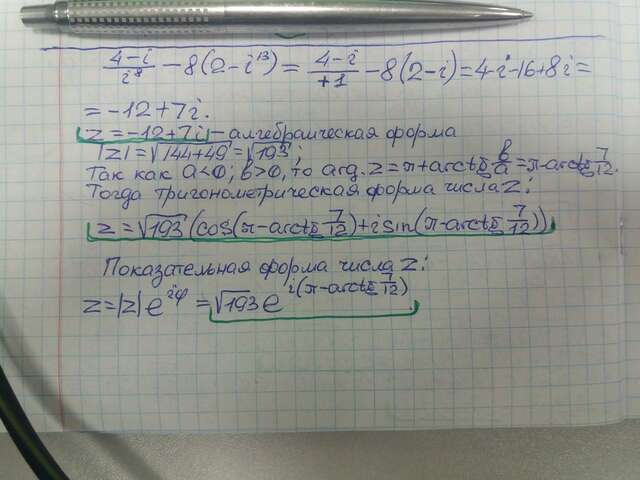 (4-i)/i⁸ - 8(2-i¹³) = (4-i)/+1 - 8(2-i) = 4-i-16+8i =
= -12+7i.
z = -12+7i - алгебраическая форма
|z| = √(144+49) = √193;
Так как a<0; b>0, то arg. z = π+arctg b/a = π-arctg 7/12.
Тогда тригонометрическая форма числа z:
z = √193 (cos(π-arctg 7/12)+i sin(π-arctg 7/12))
Показательная форма числа z:
z = |z| e^(iφ) = √193 e^(i(π-arctg 7/12))